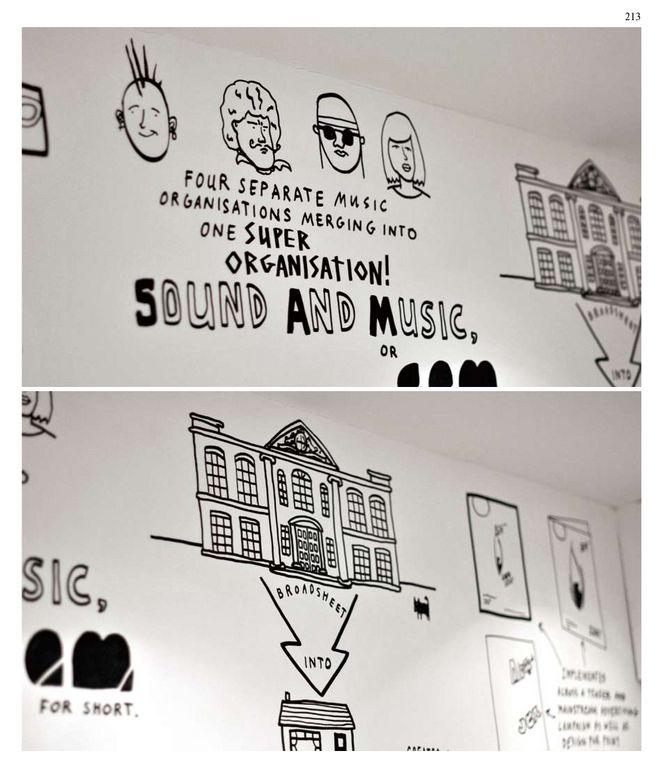 213
FOUR SEPARATE MUSIC
ORGANISATIONS MERGING INTO
ONE SUPER
ORGANISATION!
SOUND AND MUSIC,
OR
BROADSHEET
INTO
SIC,
FOR SHORT.
BROADSHEET
INTO
IMPLEMENTED
ACROSS A TENDER AND
MAINSTREAM ADVERTISING
CAMPAIGN AS WELL AS
DESIGN FOR PRINT